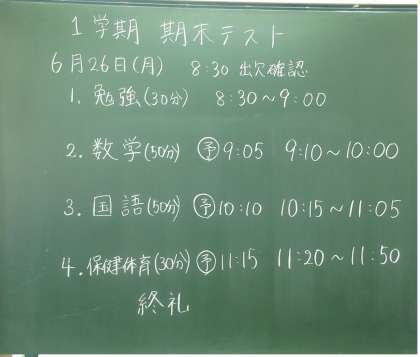 1学期 期末テスト
6月26日(月) 8:30 出欠確認
1. 勉強(30分) 8:30～9:00
2. 数学(50分) ㋵9:05 9:10～10:00
3. 国語(50分) ㋵10:10 10:15～11:05
4. 保健体育(30分) ㋵11:15 11:20～11:50
終礼